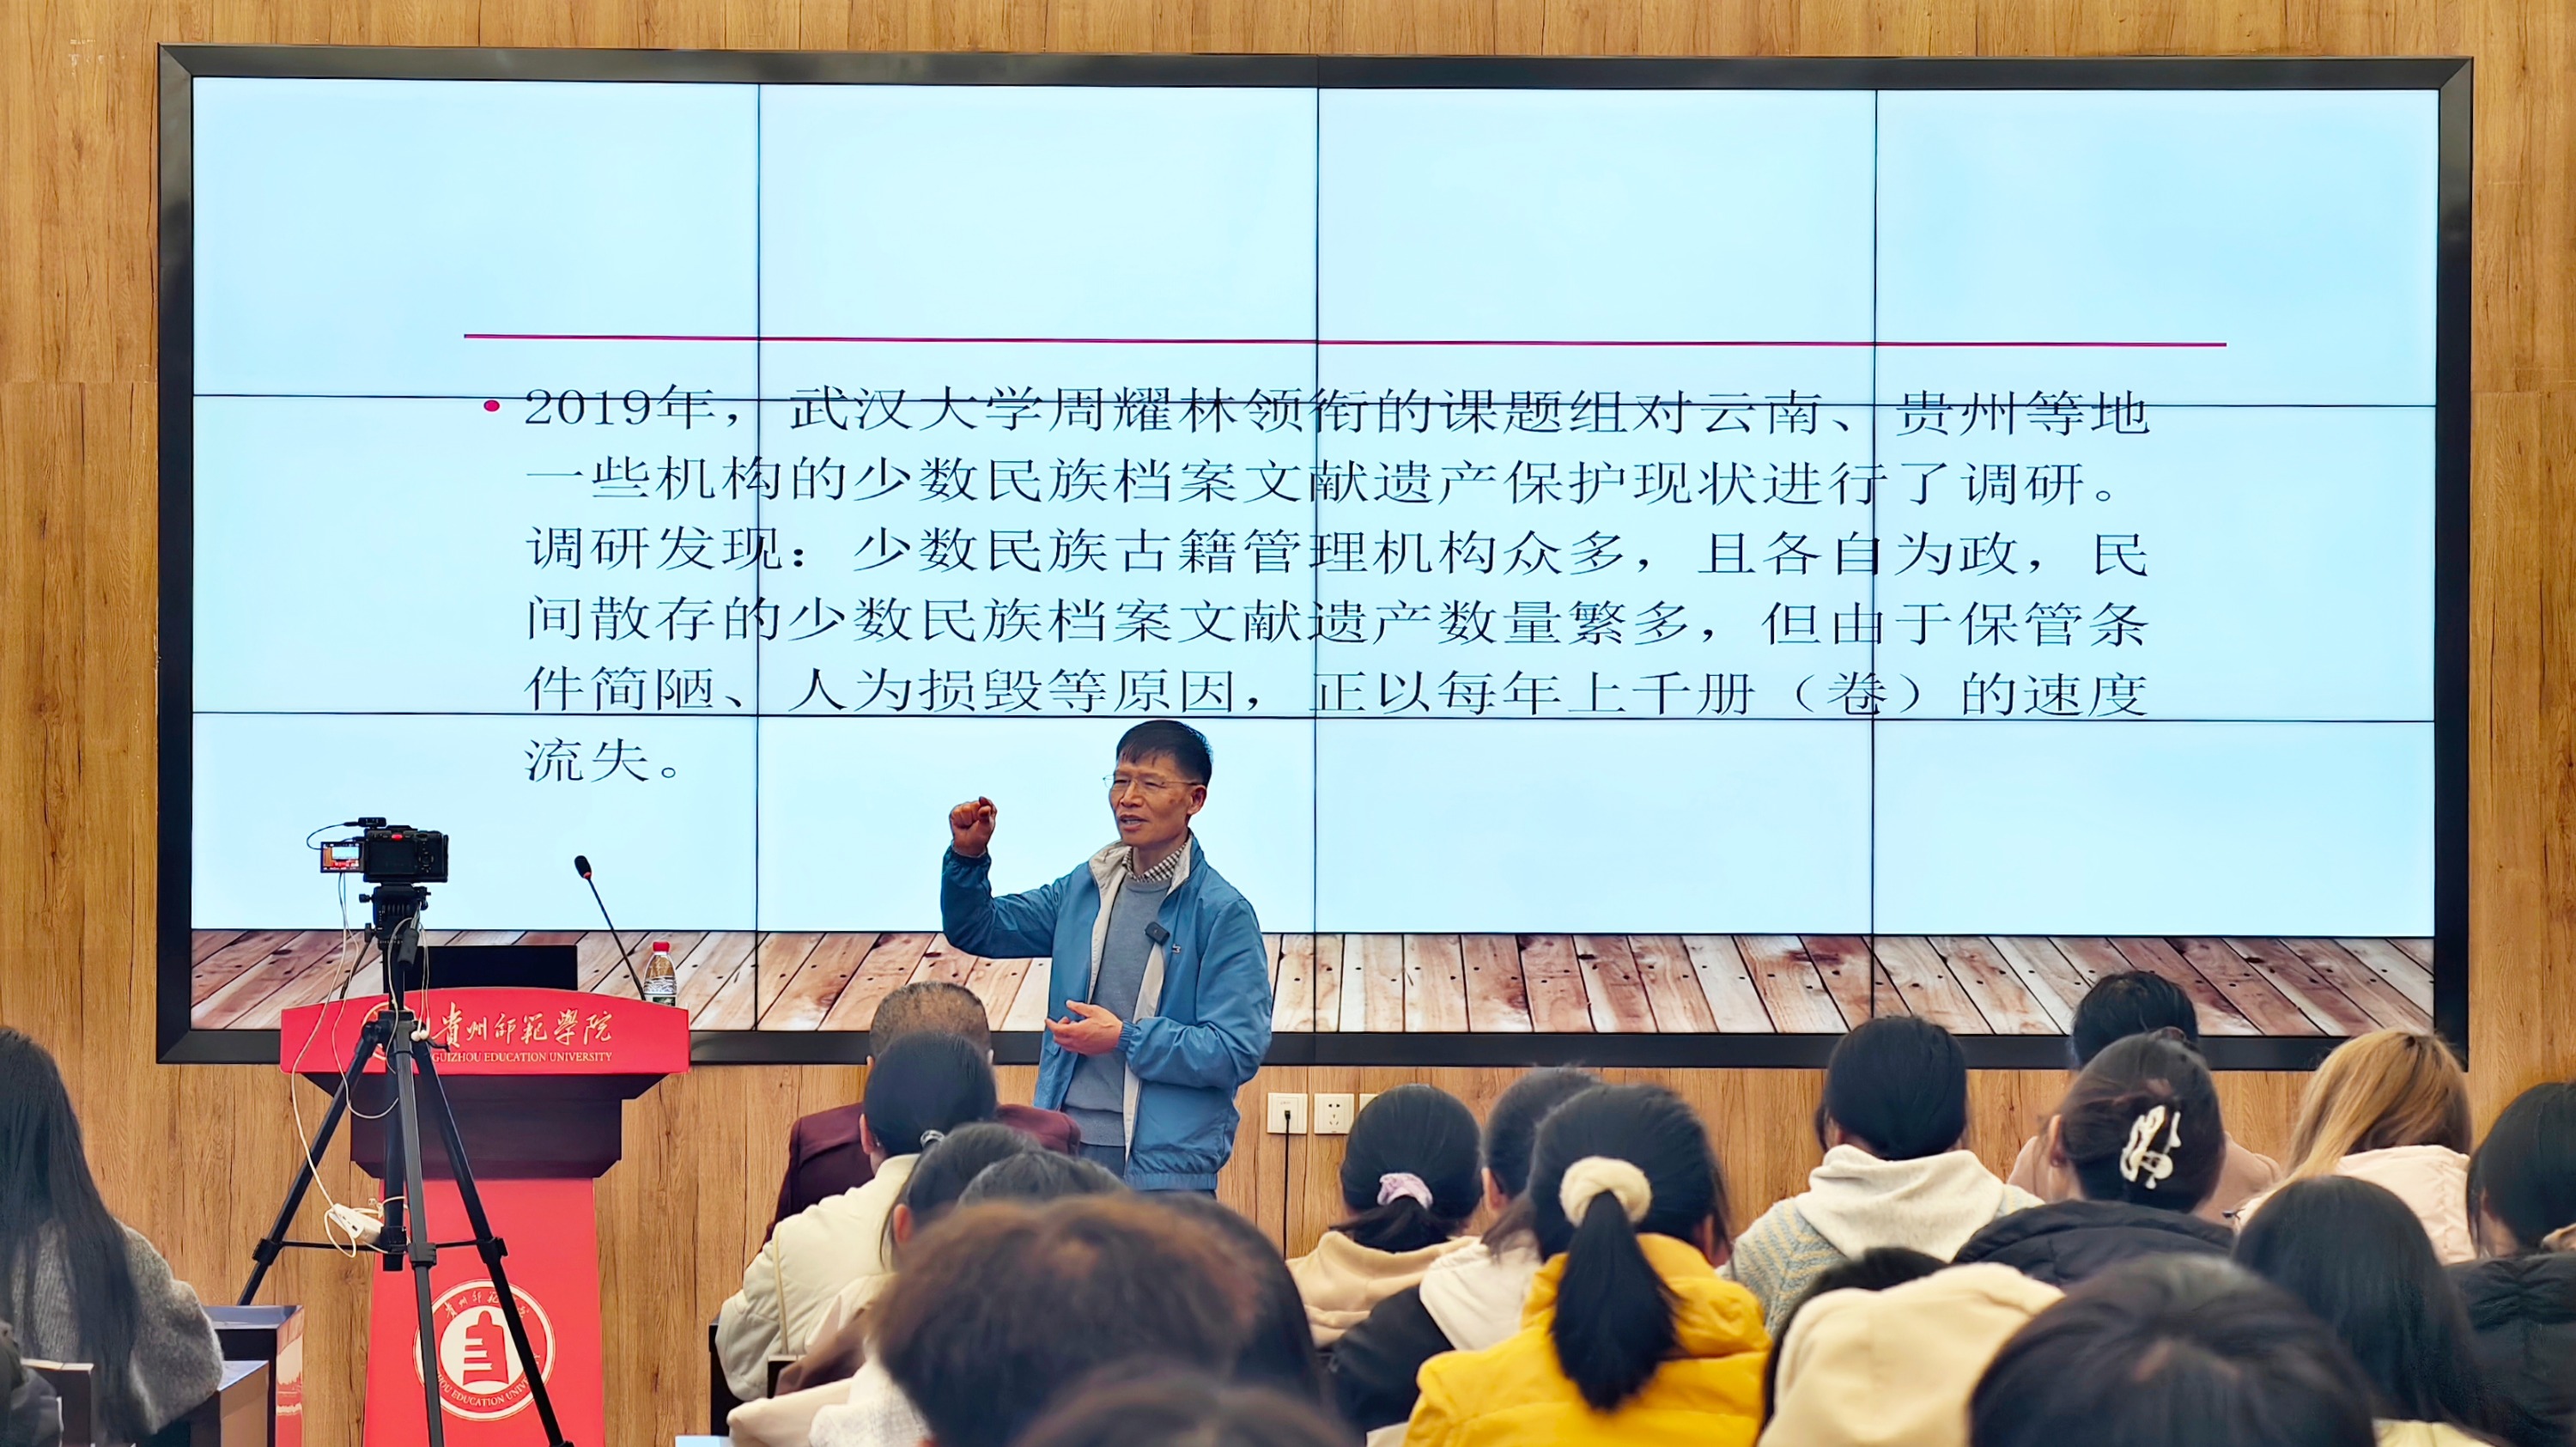 • 2019年，武汉大学周耀林领衔的课题组对云南、贵州等地
一些机构的少数民族档案文献遗产保护现状进行了调研。
调研发现：少数民族古籍管理机构众多，且各自为政，民
间散存的少数民族档案文献遗产数量繁多，但由于保管条
件简陋、人为损毁等原因，正以每年上千册（卷）的速度
流失。
貴州師範學院
GUIZHOU EDUCATION UNIVERSITY